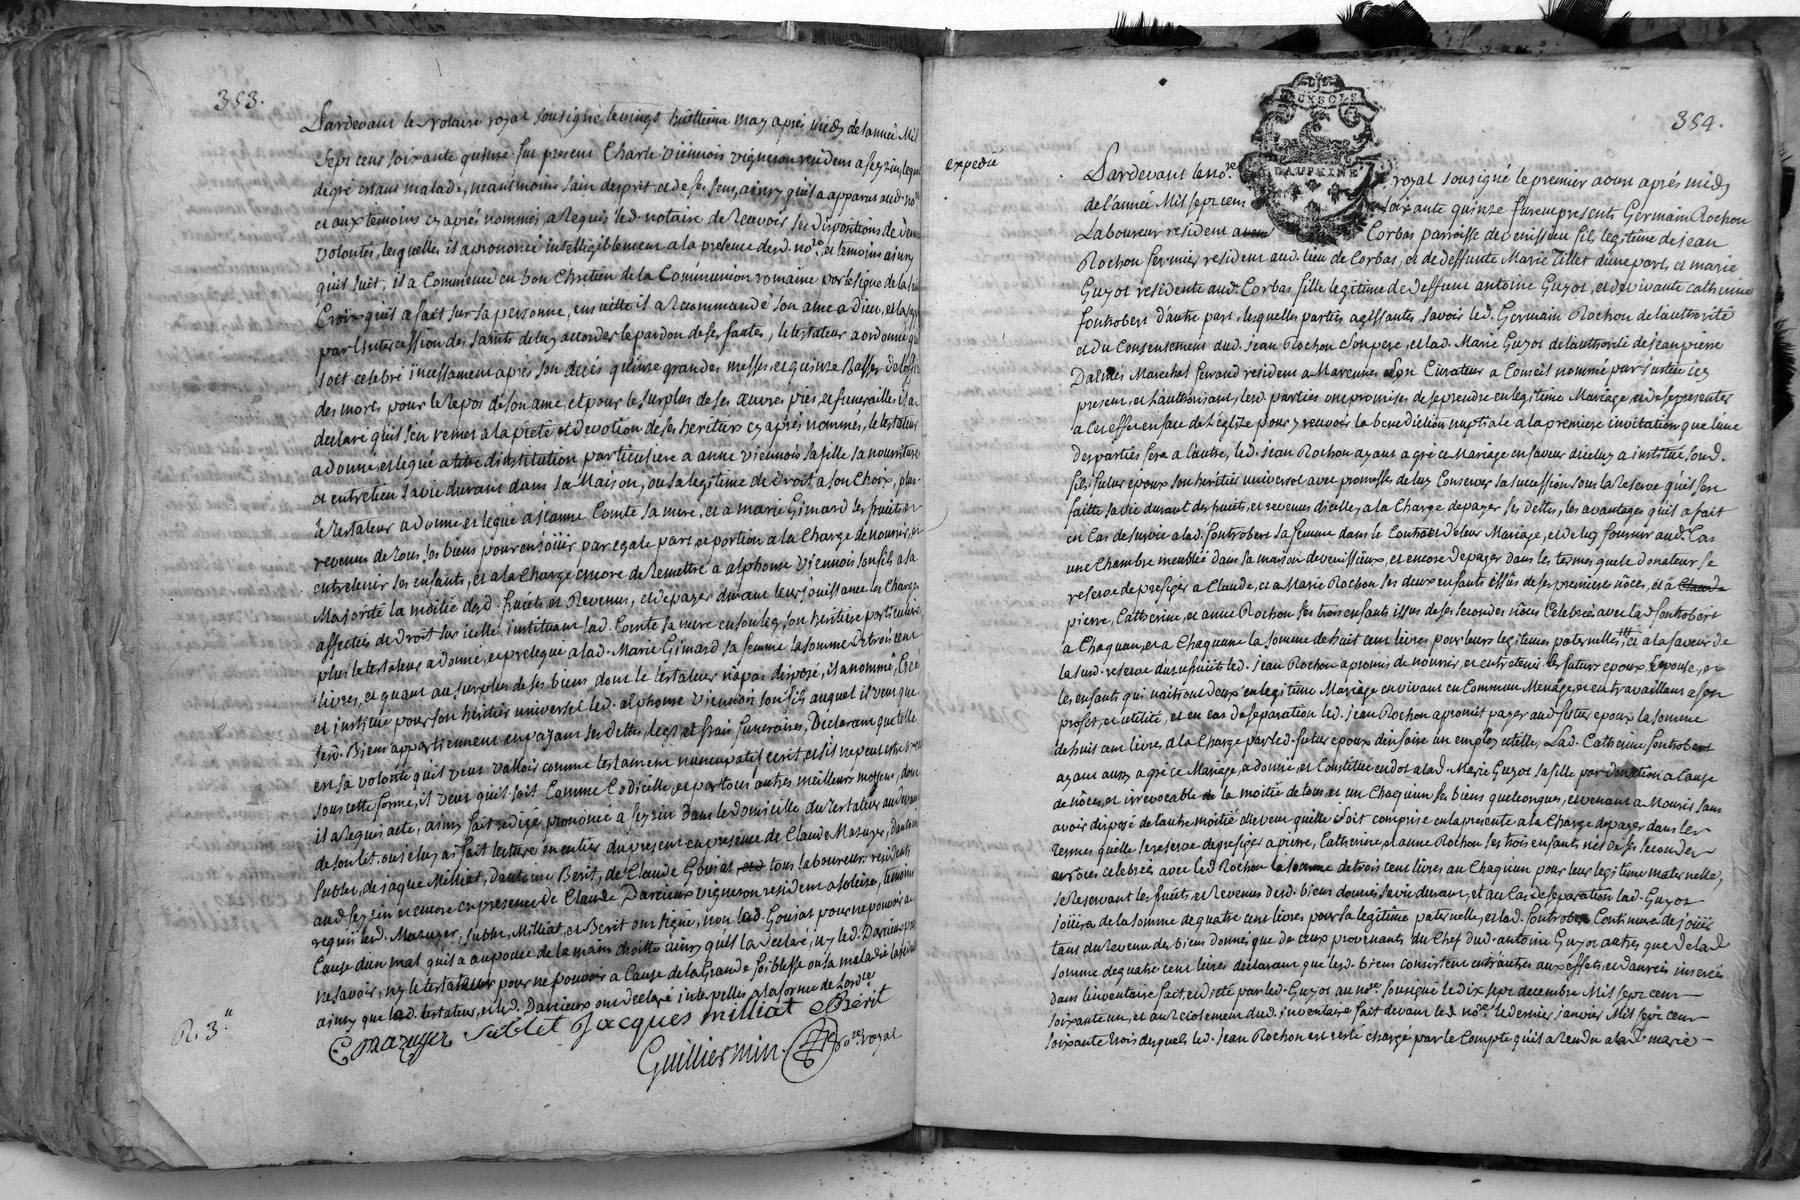 353.
Pardevant le Notaire royal sousigné le vingt huitieme may aprés midy de l'année Mil
sept cent soixante quinse fut present Charle Viennois vigneron resident a seyzin, lequel
de gré estant malade, neantmoins sain desprit, et de ses sens, ainsy quil a apparut aud. nore
et aux temoins cy aprés nommés, a requis led. notaire de recevoir ses dispositions de derniere
volontés, lesquelles il a prononcé intelligiblement a la presence desd. nore. et temoins ainsy
quil suit, il a Commencé en bon Chretien de la Communion romaine par le signe de la sainte
Croix quil a fait sur sa personne, en suitte il a recommandé son ame a dieu, et la supplié
par l'intercession des saints de luy accorder le pardon de ses fautes, le testateur a ordonné quil
soit celebré incessament aprés son decés quinse grandes messes, et quinze Basses de l'office
des morts pour le repos de son ame, et pour le surplus de ses œuvres pies, et funerailles il a
declaré quil s'en remet a la pieté, et devotion de ses heritiers cy aprés nommés, le testateur
a donné, et legué a titre d'institution particuliere a anne viennois sa fille sa nourriture
et entretien sa vie durant dans sa Maison, ou sa legitime de droit a son Choix, plus
le testateur a donné et legué a Jeanne Comte sa mere, et a marie Gimard les fruits et
revenus de tous ses biens pour en joüir par egale part et portion a la Charge de nourrir, et
entretenir ses enfants, et a la Charge encore de remettre a alphonse Viennois son fils a sa
Majorité la moitié desd. fruits et Revenus, et de payer durant leur jouissance les Charges
affectées de droit sur icelle, instituant lad. Comte sa mere en son leg, son heritiere particuliere
plus le testateur a donné, et prelegué a lad. Marie Gimard sa femme la somme de trois cent
livres, et quant au surplus de ses biens dont le testateur n'a pas disposé, il a nommé, Créé
et institué pour son heritier universel led. alphonse Viennois son fils auquel il veut que
sesd. Biens appartiennent en payant ses dettes, legs, et frais funeraires, Declarant que telle
est sa volonté quil veut valloir comme testament nuncupatif ecrit, et sil ne peut estre
sous cette forme, il veut quil soit Comme Codicille, et par tous autres meilleurs moyens, dont
il a requis acte, ainsy fait redigé prononcé a seyzin dans le domicille du testateur au devant
de son lit, ou celuy a fait lecture en entier du present en presence de Claude Mazuyer,
Sublet, de jaque Milliat, d'antoine Berit, de Claude Goujat tous laboureurs residents
aud. seyzin et encore en presence de Claude Darcieux vigneron resident a solaise, temoins
requis led. Mazuyer, Sublet, Milliat, et Berit ont signé, non led. Goujat pour ne pouvoir a
Cause d'un mal quil a au pouce de la main droitte ainsy quil la declaré, ny led. Darcieux pour
ne savoir, ny le testateur pour ne pouvoir a Cause de la Grande foiblesse ou sa maladie la reduit
ainsy que led. testateur, et led. Darcieux ont declaré interpellés a la forme de l'ordce
C mazuyer Sublet Jacques milliat Berit
R. 3.tt
Guilliermin nore. royal
354.
DEUX SOLS
DAUPHINÉ
expedié
Pardevant le nore. royal sousigné le premier aoust aprés midy
de l'année Mil sept cent soixante quinze furent presents Germain Rochon
Laboureur resident a Corbas parroisse de venissieu fils legitime de jean
Rochon fermier resident aud. lieu de Corbas, et de deffunte Marie Tillet d'une part, et marie
Guyot residente aud. Corbas fille legitime de deffunt antoine Guyot, et de vivante catherine
fontrobert d'autre part, lesquelles parties agissantes, savoir led. Germain Rochon de l'authorité
et du Consentement dud. jean Rochon son pere, et lad. Marie Guyot de l'authorité de jean pierre
Dalmés Marechal ferrand resident a Marennes son Curateur a Conseil nommé par justice icy
present, et l'authorisant, lesd. parties ont promises de se prendre en legitime Mariage, et de se presenter
a cet effet en face de l'eglise pour y recevoir la benediction nuptiale a la premiere invitation que l'une
des parties fera a l'autre, led. jean Rochon ayant agréé ce Mariage en faveur d'iceluy a institué sond.
fils, futur epoux son heritier universel avec promesses de luy Conserver sa sucession sous la reserve quil s'en
faitte sa vie durant des fruits, et revenus d'icelles, a la Charge de payer ses dettes, les avantages quil a fait
en Cas de survie a lad. fontrobert sa femme dans le Contract de leur Mariage, et de luy fournir aud. Cas
une Chambre meublée dans sa maison de venissieux, et encore de payer dans les termes que le donateur se
reserve de presiger a Claude, et a Marie Rochon ses deux enfants issus de ses premieres nôces, et a Claude
pierre, Catherine, et anne Rochon ses trois enfants issus de ses secondes nôces Celebrées avec lad. fontrobert
a Chaquun, et a Chaquune la somme de huit cent livres pour leurs legitimes paternelles, et a la faveur de
la susd. reserve dusufruits led. jean Rochon a promis de nourrir, et entretenir les futurs epoux, Epouse, et
les enfants qui naitront d'eux en legitime Mariage en vivant en Commun Menage, et en travaillant a son
profit, et utilité, et en cas de separation led. jean Rochon a promit payer aud. futur epoux la somme
de huit cent livres, a la Charge par led. futur epoux d'en faire un emploi utille, Lad. Catherine fontrobert
ayant aussy agréé ce Mariage, a donné, et Constitué en dot a lad. Marie Guyot sa fille par donation a Cause
de nôces, et irrevocable de la moitié de tous, et un Chaquun ses biens quelconques, et venant a Mourir sans
avoir disposé de l'autre moitié elle veut quelle soit comprise en la presente a la Charge de payer dans les
termes quelle se reserve de presiger a pierre, Catherine, et anne Rochon ses trois enfants nés de ses secondes
nôces celebrées avec led. Rochon la somme de trois cent livres au Chaquun pour leur legitime maternelle,
se reservant les fruits, et Revenus desd. biens donnés, sa vie durant, et au Cas de separation lad. Guyot
joüira de la somme de quatre cent livres pour sa legitime paternelle, et lad. fontrobert Continuera de joüir
tant du revenu des biens donnés que de ceux provenants du Chef dud. antoine Guyot autres que de lad.
somme de quatre cent livres declarant que lesd. biens consistent entr'autres aux effets, et danrées inserées
dans l'inventaire fait et dicté par led. Guyot au nore. sousigné le dix sept decembre Mil sept cent
soixante un, et au reciolement dud. inventaire fait devant led. nore. le dernier janvier Mil sept cent
soixante trois desquels led. jean Rochon est resté chargé par le Compte quil a rendu a lad. marie